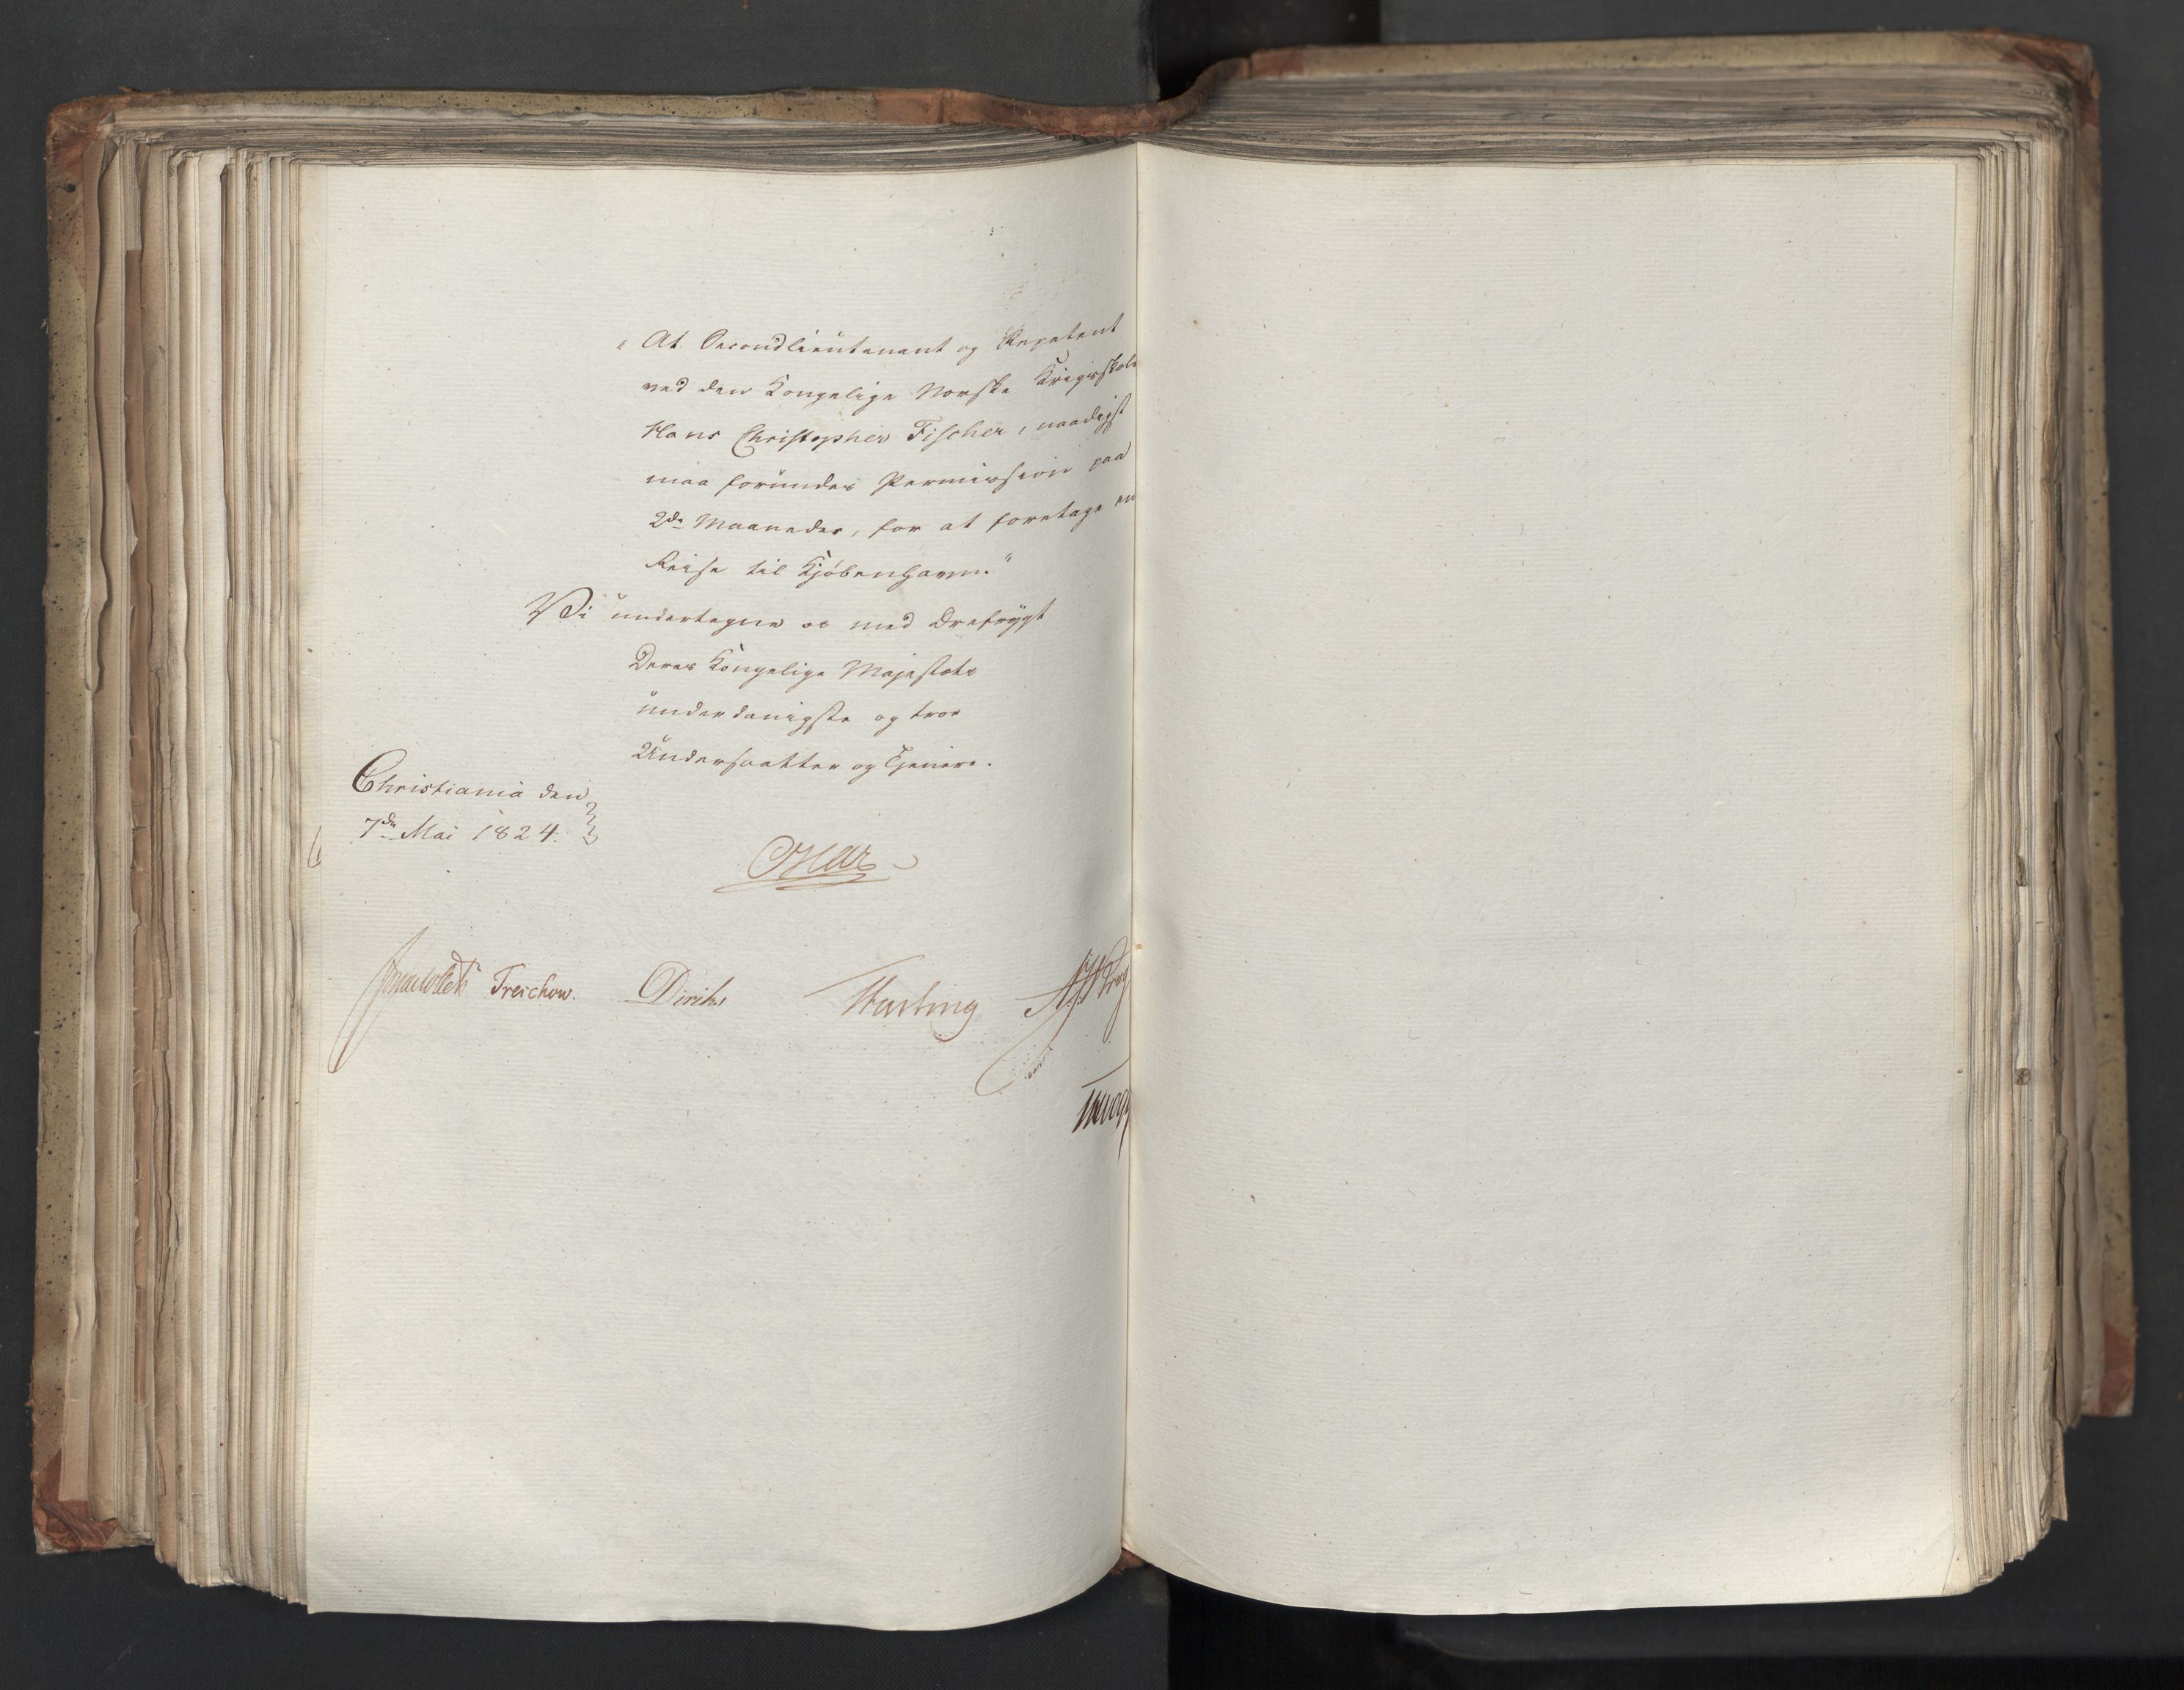 "At Secondlieutenant og Repetent
ved den Kongelige Norske Krigsskole
Hans Christopher Fischer, naadigst
maa forundes Permission paa
2de Maaneder, for at foretage en
Reise til Kjöbenhavn."
Vi undertegne os med Ærefrygt
Deres Kongelige Majestæts
underdanigste og troe
Undersaatter og Tjenere.
Christiania den
7de Mai 1824.
Oscar
Sommerhielm Treschow. Diriks Fasting